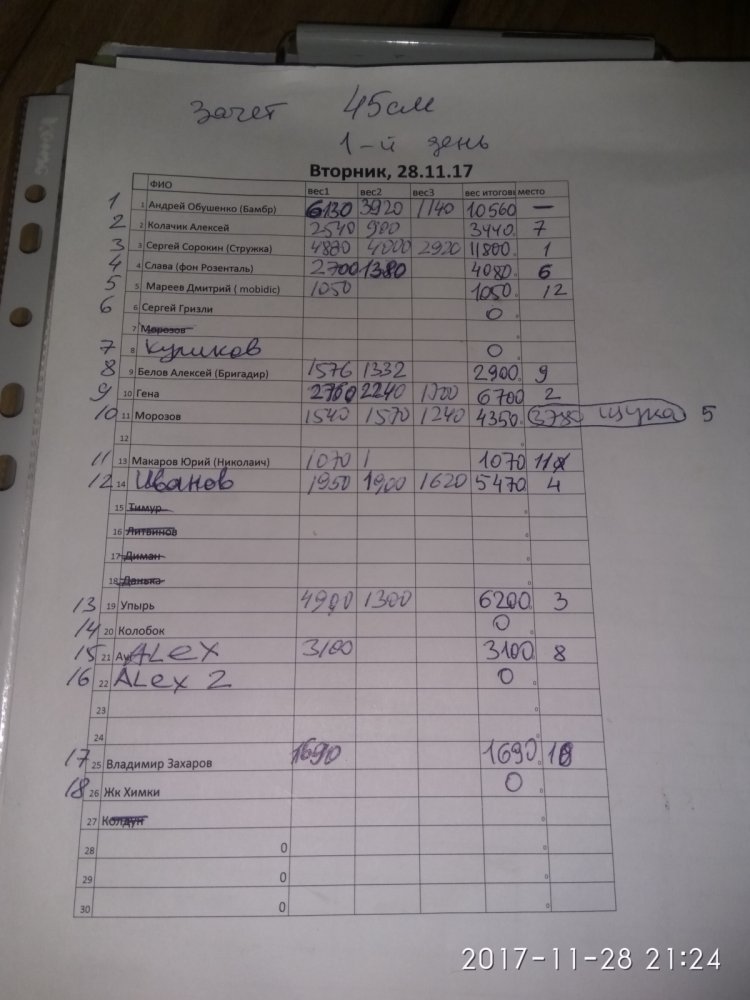 Зачет 45см
1-й день
Вторник, 28.11.17
ФИО вес1 вес2 вес3 вес итоговы место
1 1 Андрей Обушенко (Бамбр) 6130 3920 1140 10560 —
2 2 Колачик Алексей 2540 900 3440 7
3 3 Сергей Сорокин (Стружка) 4880 4000 2920 11800 1
4 4 Слава (фон Розенталь) 2700 1380 4080 6
5 5 Мареев Дмитрий ( mobidic) 1050 1050 12
6 6 Сергей Гризли 0
7 Морозов
7 8 Куликов 0
8 9 Белов Алексей (Бригадир) 1576 1332 2900 9
9 10 Гена 2760 2240 1700 6700 2
10 11 Морозов 1540 1570 1240 4350 3780 щука 5
12
11 13 Макаров Юрий (Николаич) 1070 1 1070 11
12 14 Иванов 1950 1900 1620 5470 4
15 Тимур
16 Литвинов
17 Диман
18 Данька
13 19 Упырь 4900 1300 6200 3
14 20 Колобок 0
15 21 ALex 3100 3100 8
16 22 ALex 2 0
23
24
17 25 Владимир Захаров 1690 1690 10
18 26 Жк Химки 0
27 Колдун
28 0
29 0
30 0
2017-11-28 21:24